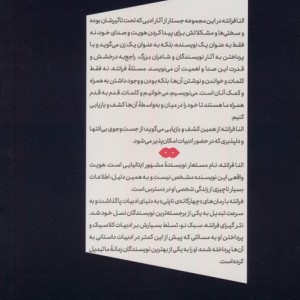 النا فرانته در این مجموعه جستار از آثار ادبی‌ که تحت تاثیرشان بوده
و سختی‌ها و مشکلاتش برای پیدا کردن هویت و صدای خود نه
فقط به عنوان یک نویسنده، بلکه به عنوان یک زن می‌گوید و با
پرداختن به آثار نویسندگان و شاعران بزرگ، راجع به درخشش و
قدرت این صدا و اهمیت آن می‌نویسد. مسئلهٔ فرانته، نه فقط
کلمات و خواندن و نوشتن آن‌ها، بلکه بودن و وجود داشتن به همراه
و کمک آنان است. می‌نویسیم، می‌خوانیم و کلمات، قدم به قدم
همراه ما هستند تا خود را در میان و به‌واسطهٔ آن‌ها کشف و بازیابی
کنیم.
النا فرانته از همین کشف و بازیابی می‌گوید؛ از جست‌وجوی بی‌انتها
و دلپذیری که در حضور ادبیات امکان‌پذیر می‌شود.
النا فرانته، نام مستعار نویسندهٔ مشهور ایتالیایی است. هویت
واقعی این نویسنده مشخص نیست و به همین دلیل، اطلاعات
بسیار ناچیزی از زندگی شخصی او در دسترس است.
فرانته با رمان‌های «چهارگانه‌ی ناپلی» به دنیای ادبیات پا گذاشت و به
سرعت تبدیل به یکی از برجسته‌ترین نویسندگان نسل خود شد.
نثر گیرای فرانته، سبک نو، تسلط بسیارش بر ادبیات کلاسیک و
پرداختن او به مسائلی که پیش از این کمتر در ادبیات داستانی به
آن‌ها پرداخته شده، او را به یکی از بهترین نویسندگان زمانهٔ ما تبدیل
کرده است.